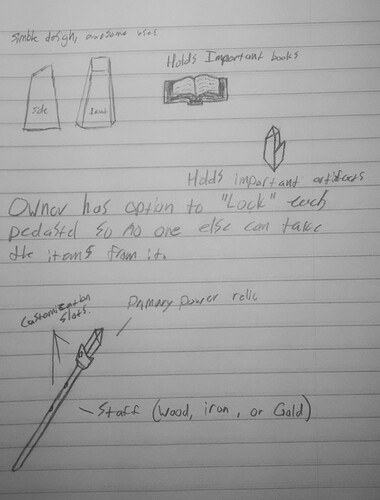 Simple design, awesome uses
Holds Important books
Side
Front
Holds important artifacts
Owner has option to "Lock" each
pedastal so no one else can take
the items from it.
Customization
slots.
Primary power relic
Staff (Wood, iron, or Gold)